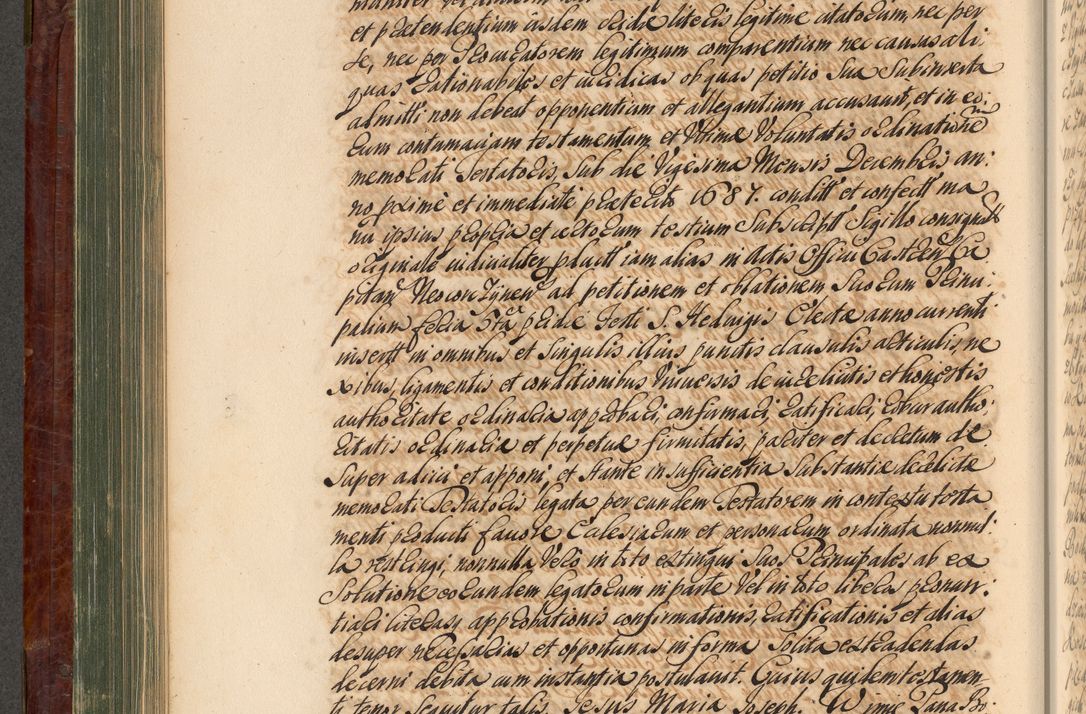 et praetendentium easdem eiusdae literis legitime citatorum, nec per
se, nec per Procuratorem legitimum comparentium nec causas ali
quas rationabiles et iuridicas ob quas petitio sua subinserta
admitti non debeat opponentium et allegantium accusavit, et in eo:
rum contumaciam testamentum et ultimae voluntatis ordinationem
memorati Testatoris, sub die Vigesima Mensis Decembris an:
no proxime et immediate praeterito 1687. condittm et confecttm ma
nu ipsius propria et certorum testium subscripttm Sigillo consignattm
originale iudicialiter productt iam alias in Actis Officii Castren Ca
pitan Neocorczynen ad petitionem et oblationem suorum Princi:
palium feria 5ta pridie Festi S. Hedvigis Electae anno currenti
inserttm in omnibus et singulis illius punctis clausulis articulis, ne
xibus, ligamentis et conditionibus universis de iure licitis et honestis
authoritate ordinaria approbari, confirmari, ratificari, robur autho:
ritatis ordinariae et perpetuae firmitatis, pariter et decretum de
super adiici et apponi, et stante insufficientia substantiae derelictae
memorati Testatoris legata per eundem Testatorem in contextu testa
menti producti favore Ecclesiarum et personarum ordinata nonnul:
la restringi, nonnulla vero in toto extingui suos Principales ab ea
solutione eorundem legatorum in parte vel in toto liberos pronun:
tiari literasq approbationis confirmationis, ratificationis et alias
desuper necessarias et opportunas in forma solita extradendas
decerni debita cum instantia postulavit. Cuius quidem testamen
ti tenor sequitur talis. Jesus Maria Joseph. W Imie Pana Bo: